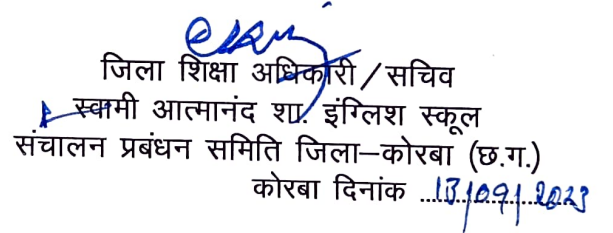 जिला शिक्षा अधिकारी / सचिव
स्वामी आत्मानंद शा. इंग्लिश स्कूल
संचालन प्रबंधन समिति जिला–कोरबा (छ.ग.)
कोरबा दिनांक 13/09/2023